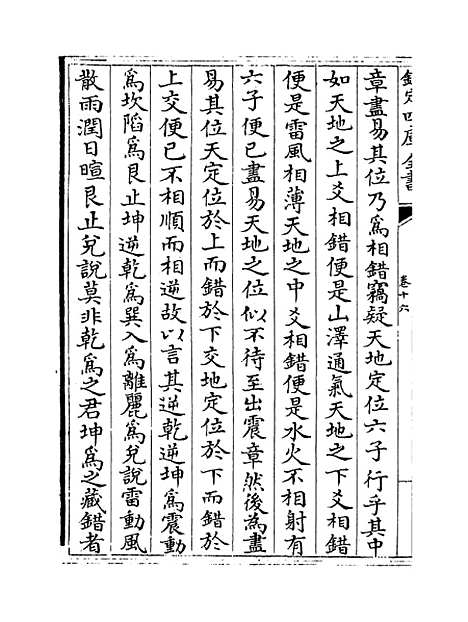 欽定四庫全書
卷十六
章盡易其位乃爲相錯竊疑天地定位六子行乎其中
如天地之上爻相錯便是山澤通氣天地之下爻相錯
便是雷風相薄天地之中爻相錯便是水火不相射有
六子便已盡易天地之位似不待至出震章然後為盡
易其位天定位於上而錯於下交地定位於下而錯於
上交便已不相順而相逆故以言其逆乾逆坤爲震動
爲坎陷爲艮止坤逆乾爲巽入爲離麗爲兌說雷動風
散雨潤日暄艮止兌說莫非乾爲之君坤爲之藏錯者